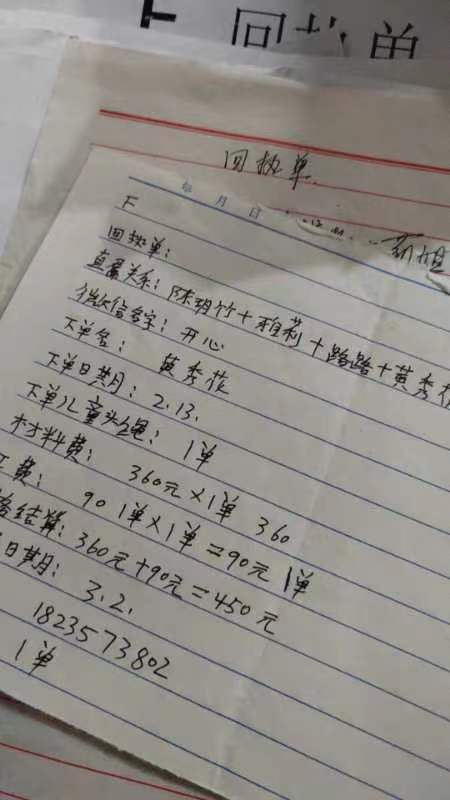 回执单
回执单.
年 月 日
F
回执单:
直属关系: 陈玥竹+雅莉+路路+黄秀花
微信名字: 开心
下单名: 黄秀花
下单日期: 2.13.
下单儿童头绳: 1单
材料费: 360元×1单 360
工费: 90 1单×1单=90元 1单
结算: 360元+90元=450元
日期: 3.2.
1823573802
1单